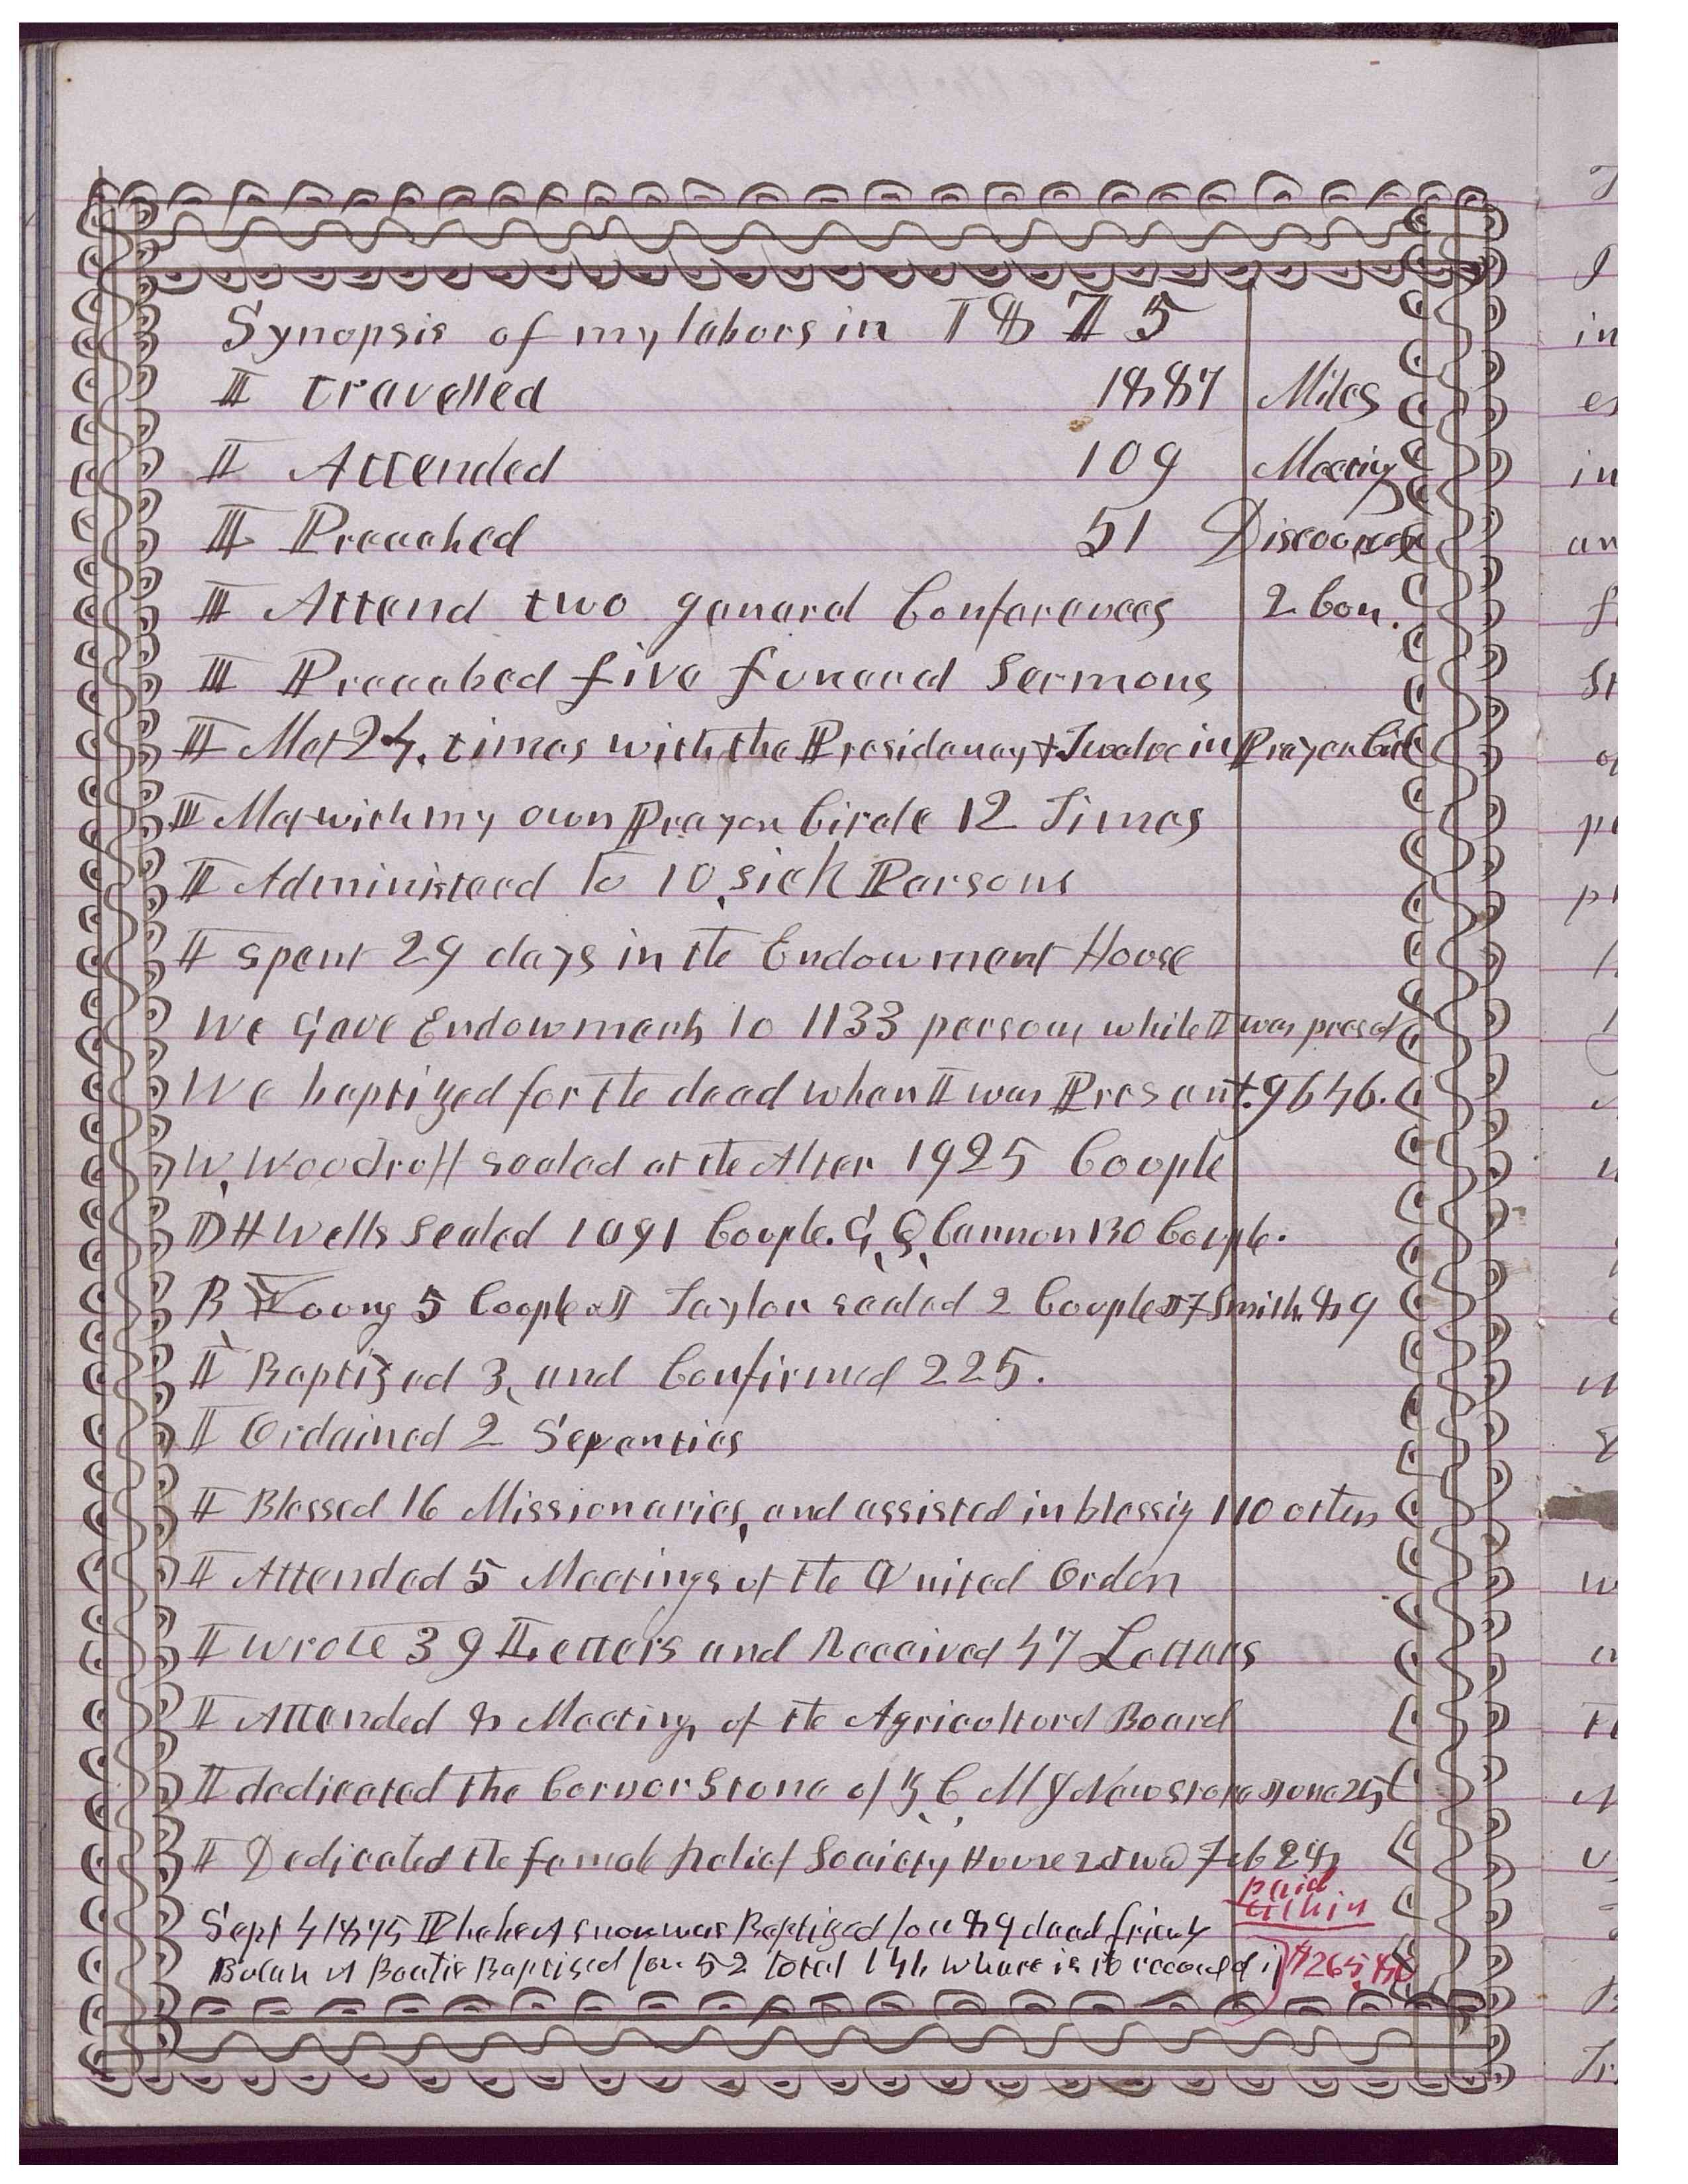 Synopsis of my labors in 1875
I travelled 1887 Miles
I Attended 109 Meeting
I Preached 51 Discourses
I Attend two general Conferences 2 Con.
I Preached five funeral Sermons
I Met 24. times with the Presidency & Twelve in Prayer Circle
I Met with my own Prayer Circle 12 Times
I Administered to 10 sick Persons
I spent 29 days in the Endowment House
We Gave Endowments to 1133 persons while I was present
We baptized for the dead when I was Present. 9646.
W. Woodruff sealed at the Alter 1925 Couple
D H Wells Sealed 1091 Couple. G, Q, Cannon 130 Couple.
B Young 5 Couple J Taylor sealed 2 Couple J F Smith 89
I Baptized 3, and Confirmed 225.
I Ordained 2 Seventies
I Blessed 16 Missionaries, and assisted in blessig 110 others
I Attended 5 Meetings of the United Order
I wrote 39 Letters and Received 47 Letters
I Attended 8 Meetings of the Agricultural Board
I dedicated the Corner Stone of Z C M I New Store June 25
I Dedicated the female Relief Society House 2d wd Feb 28
Sept 4 1875 Phebe A Snow was Baptized for 89 dead friends
Bulah A Beatie Baptised for 52 total 141. where is it recorded
paid
tithing
$265.80